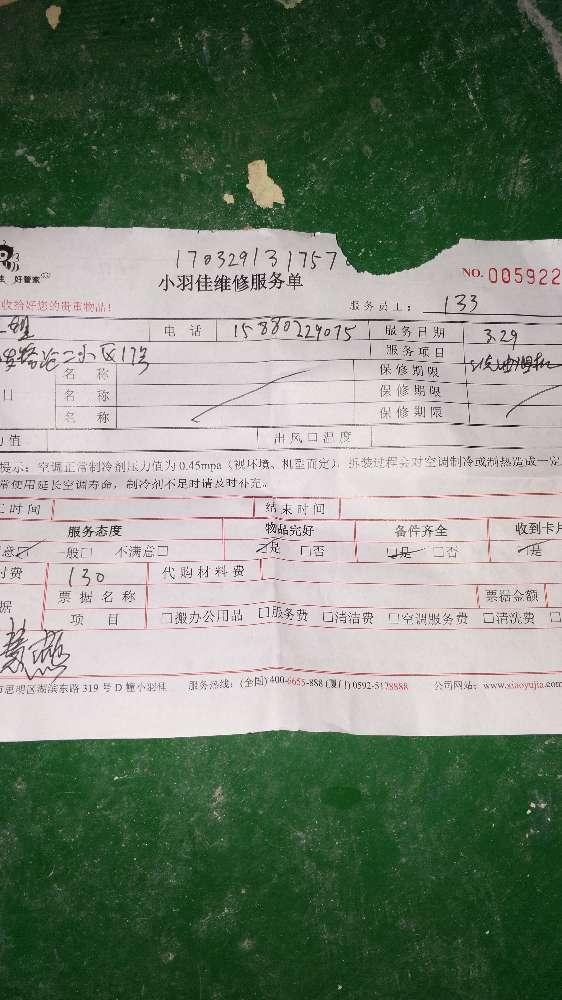 170329131757
小羽佳维修服务单
NO. 005922
好管家
收拾好您的贵重物品!
服务员工: 133
电 话 15880229075 服务日期 3.29
二小区17号
服务项目
名 称 保修期限
日 名 称 保修期限
名 称 保修期限
力值 出风口温度
提示: 空调正常制冷剂压力值为 0.45mpa (视环境、机型而定), 拆装过程会对空调制冷或制热造成一定
常使用延长空调寿命, 制冷剂不足时请及时补充。
时间 结束时间
服务态度 物品完好 备件齐全 收到卡片
意☑ 一般□ 不满意□ ☑是 □否 ☑是 □否 ☑是
付费 130 代购材料费
据 票据名称 票据金额
项 目 □搬办公用品 □服务费 □清洁费 □空调服务费 □清洗费 □
市思明区湖滨东路 319 号 D 幢小羽佳 服务热线: (全国) 400-6655-888 (厦门) 0592-5178888 公司网站: www.xiaoyujia.com